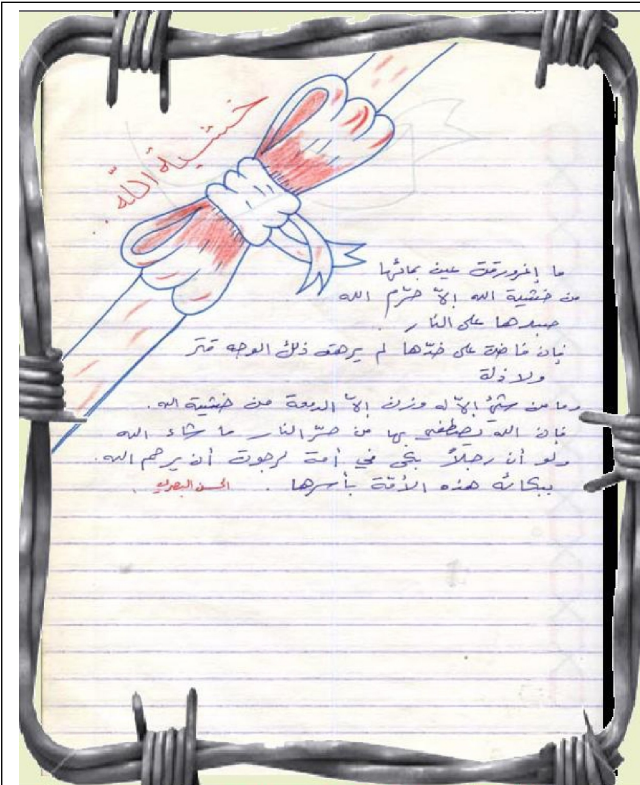 خشية الله..
ما إغرورقت عين بمائها
من خشية الله إلاّ حرّم الله
جسدها على النار.
فإن فاضت على خدّها لم يرهق ذلك الوجه قتر
ولا ذلة
وما من شئ إلاّ له وزن إلاّ الدمعة من خشية الله.
فإن الله يُطفي بها من حرّ النار ما شاء الله
ولو أن رجلاً بكى في أمة لرجوت أن يرحم الله.
ببكائه هذه الأمّة بأسرها. الحسن البصري.